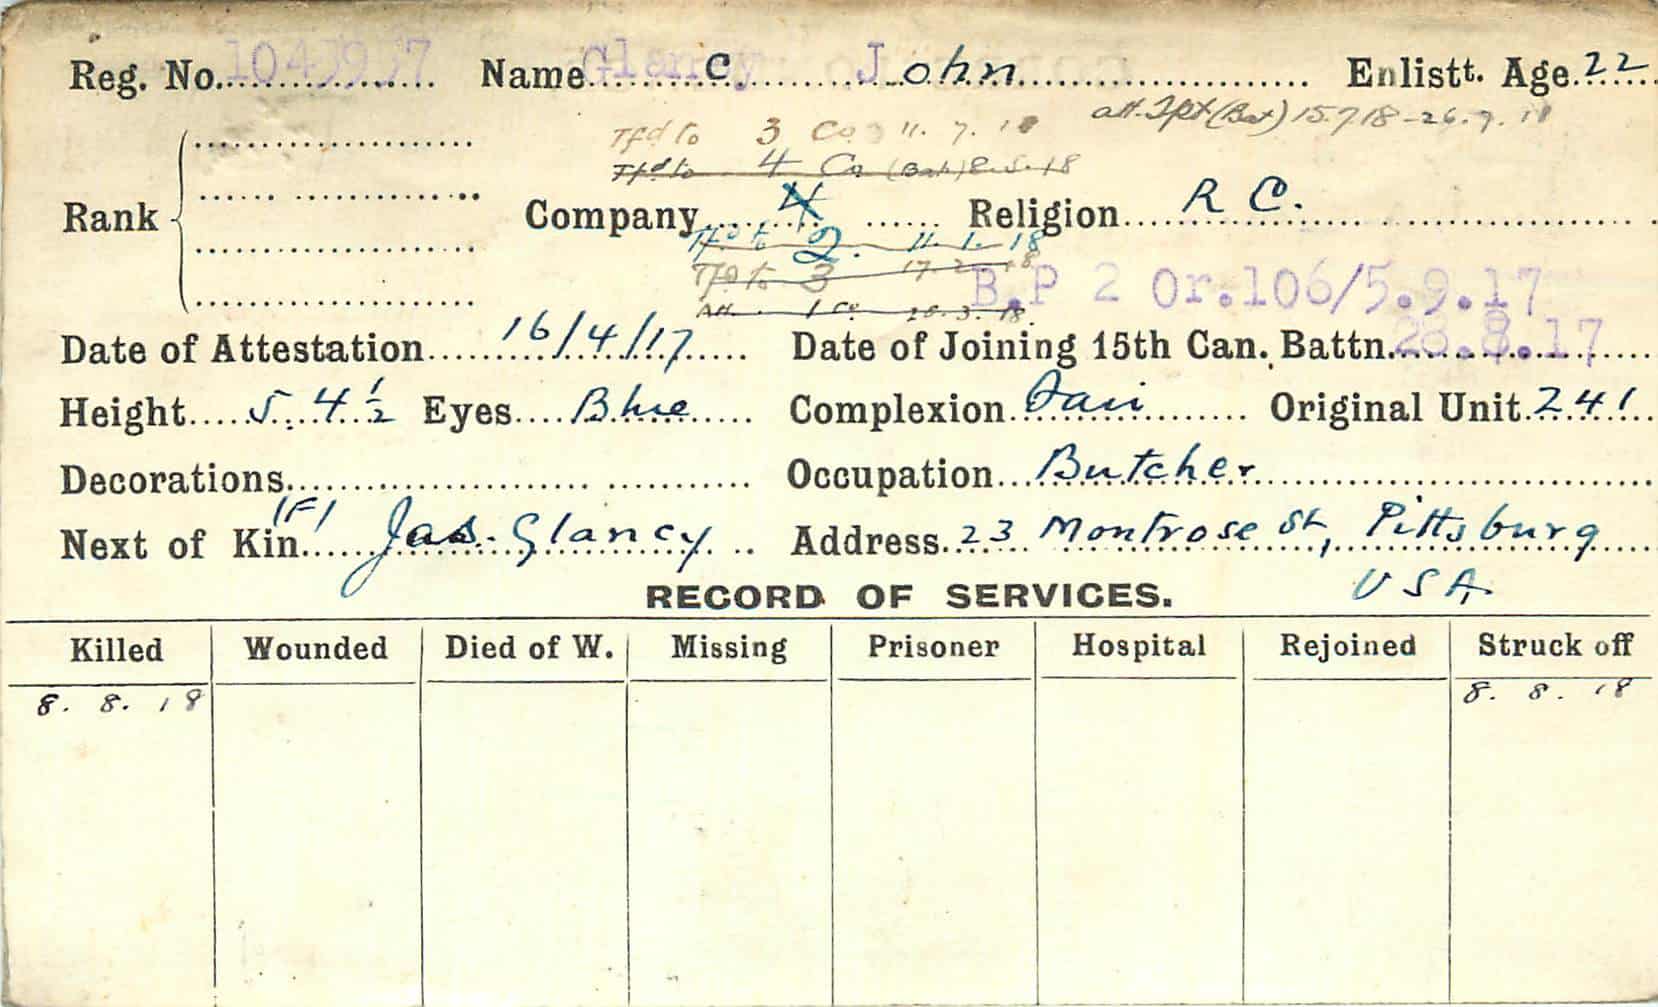 Reg. No. 1043937 Name Glancy John Enlistt. Age. 22
att. Tpt (Bat) 15.7.18 - 26.7.18
Tfd to 3 Co 11.7.18
Tfd to 4 Co (Bat) 8.5.18
Rank Company 4 Religion R C.
Tfd to 2. 11.1.18
Tfd to 3 17.2.18
B.P 2 Or.106/5.9.17
Att. 1 Co. 20.3.18
Date of Attestation 16/4/17 Date of Joining 15th Can. Battn. 28.8.17
Height 5. 4 ½ Eyes Blue Complexion Fair Original Unit 241
Decorations Occupation Butcher
Next of Kin (F) Jas. Glancy Address 23 Montrose St, Pittsburg
USA
RECORD OF SERVICES.
Killed Wounded Died of W. Missing Prisoner Hospital Rejoined Struck off
8. 8. 18 8. 8. 18